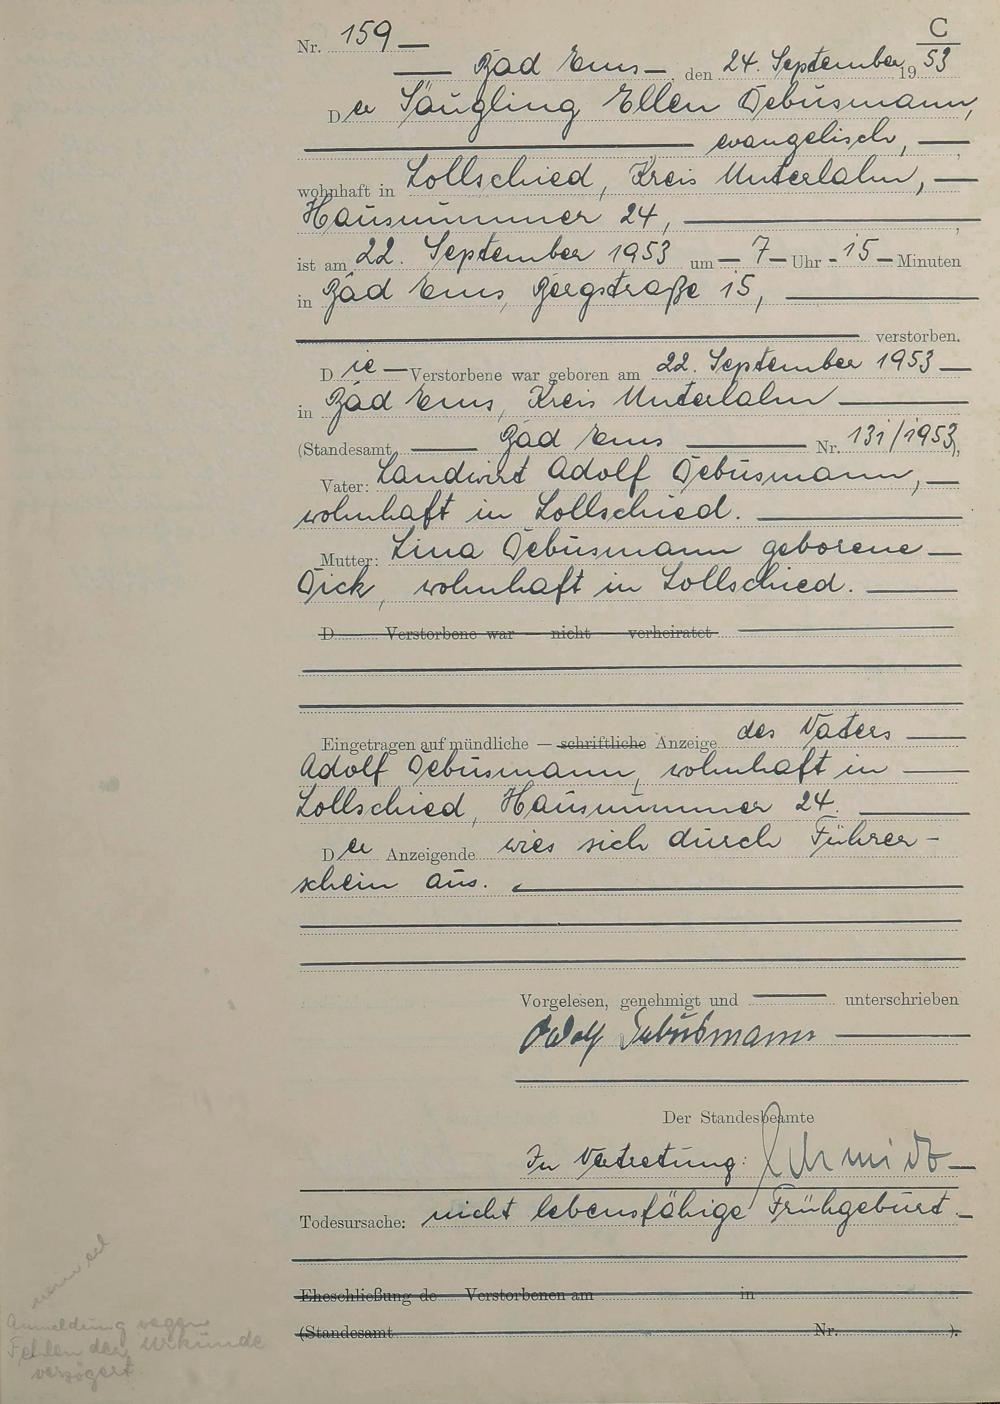 C
Nr. 159
Bad Ems, den 24. September 1953
Der Säugling Ellen Debusmann,
evangelisch,
wohnhaft in Lollschied, Kreis Unterlahn,
Hausnummer 24,
ist am 22. September 1953 um 7 Uhr 15 Minuten
in Bad Ems, Bergstraße 15,
verstorben.
Die Verstorbene war geboren am 22. September 1953
in Bad Ems, Kreis Unterlahn
(Standesamt Bad Ems Nr. 131/1953),
Vater: Landwirt Adolf Debusmann,
wohnhaft in Lollschied.
Mutter: Lina Debusmann geborene
Dick, wohnhaft in Lollschied.
D Verstorbene war nicht verheiratet
Eingetragen auf mündliche — schriftliche Anzeige des Vaters
Adolf Debusmann, wohnhaft in
Lollschied, Hausnummer 24.
Der Anzeigende wies sich durch Führer-
schein aus.
Vorgelesen, genehmigt und unterschrieben
Adolf Debusmann
Der Standesbeamte
In Vertretung: Schmidt
Todesursache: nicht lebensfähige Frühgeburt.
Eheschließung de Verstorbenen am in
(Standesamt Nr. ).
Anmeldung wegen
Fehlen der Urkunde
verzögert.